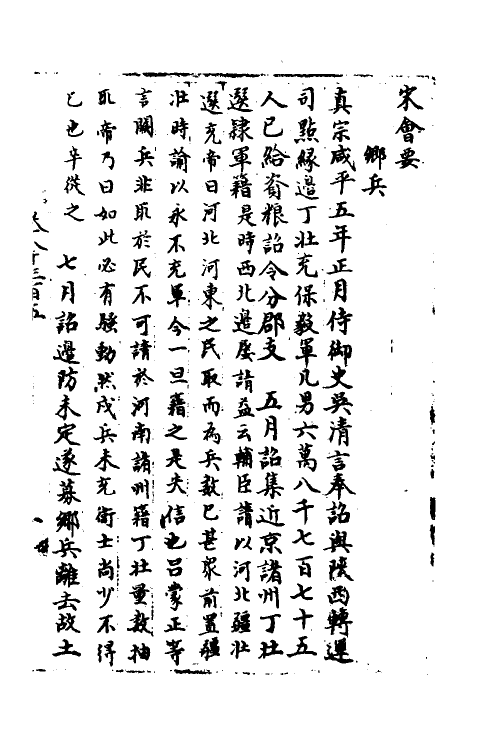 宋會要
鄉兵
真宗咸平五年正月侍御史吳清言奉詔與陝西轉運
司點緣邊丁壯充保毅軍凡男六萬八千七百七十五
人已給資粮詔令分郡支　五月詔集近京諸州丁壯
選隸軍籍是時西北邊屡請益云輔臣請以河北疆壯
選充帝曰河北河東之民取而為兵數已甚衆前置疆
壯時諭以永不充軍今一旦籍之是失信也呂蒙正等
言闕兵非取於民不可請於河南諸州籍丁壯量數抽
取帝乃曰如此必有騷動然戍兵未充衛士尚少不得
已也辛從之　七月詔邊防未定遂募鄉兵離去故土